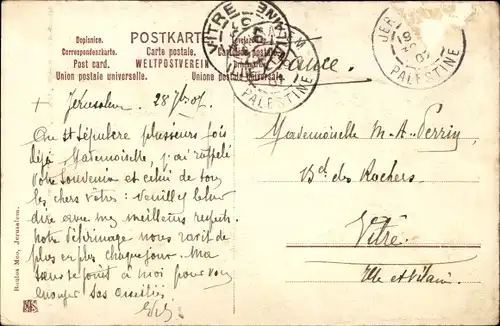 POSTKARTE
Dopisnice.
Correspondenzkarte.
Post card.
Union postale universelle.
Carte postale.
WELTPOSTVEREIN
Unione postale universale.
VITRE
ILLE-ET-VILAINE
JERUSALEM
PALESTINE
JER
PALESTINE
France.
+ Jérusalem 28 7bre 07.
Au St Sépulcre plusieurs fois
déjà Mademoiselle, j'ai rappelé
votre souvenir et celui de tous
les chers vôtres: veuillez leur
dire avec mes meilleurs respects.
notre pèlerinage nous ravit de
plus en plus chaque jour. Ma
sœur se joint à moi pour vous
envoyer ses amitiés
Mademoiselle M-A-Perrin
Bd des Rochers
Vitré
Ille et Vilaine
Boulos Meo, Jerusalem.